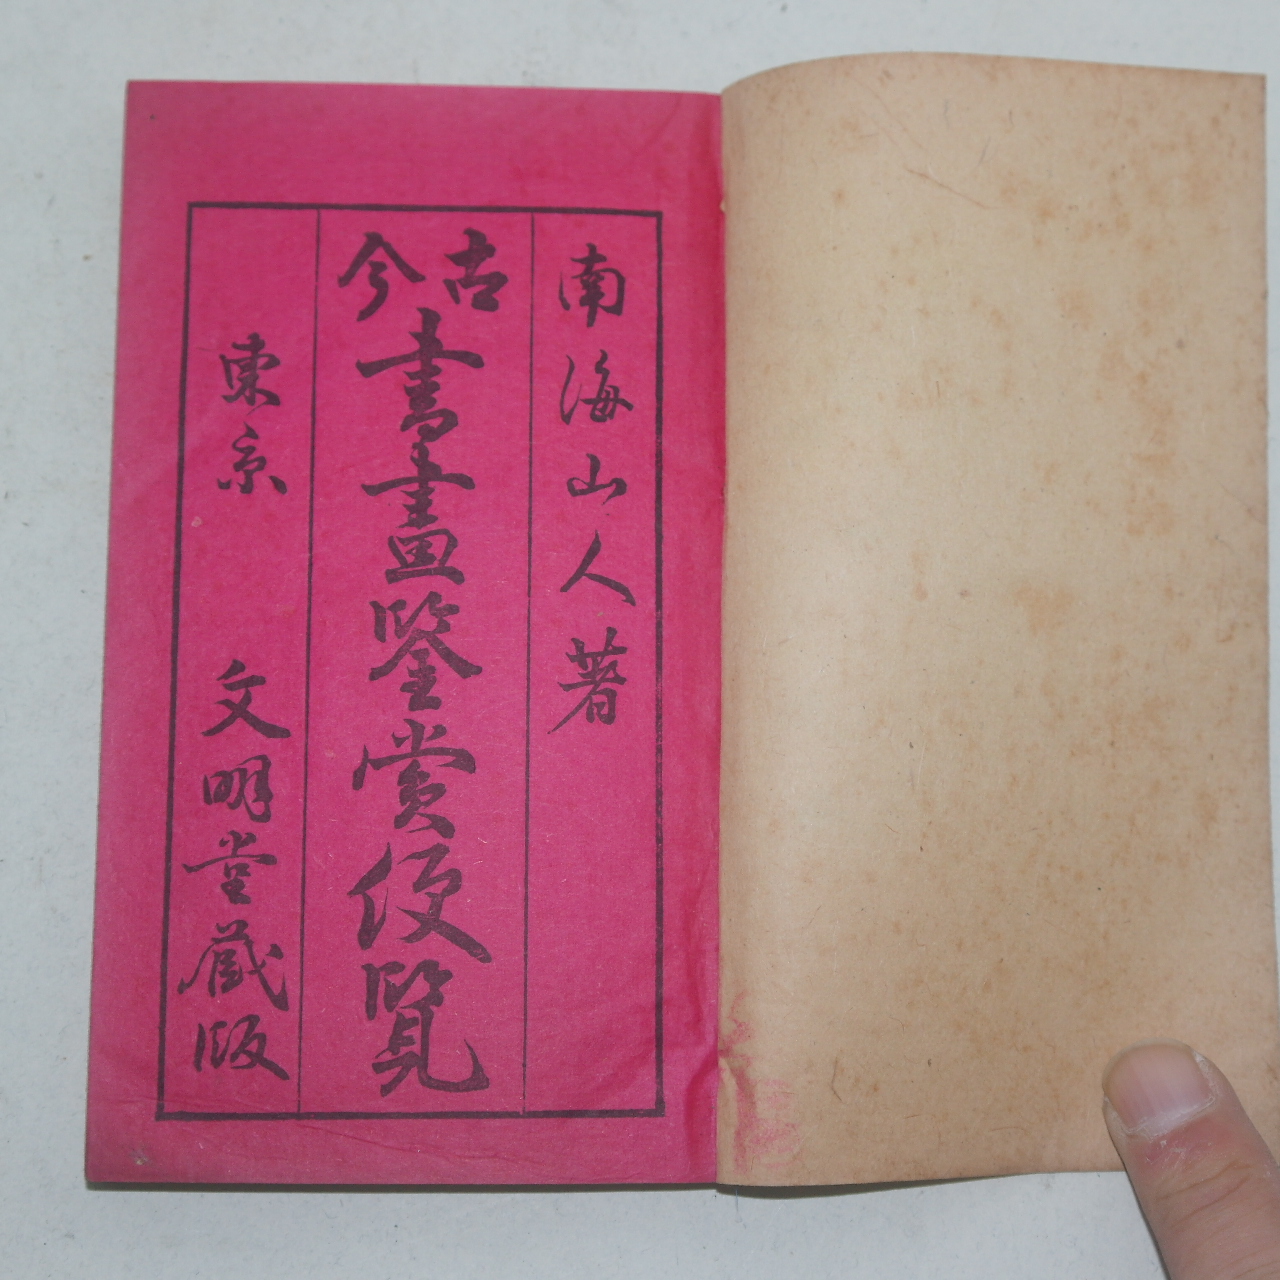 南海山人著
古今書畫鑒賞便覽
東京 文明堂藏版